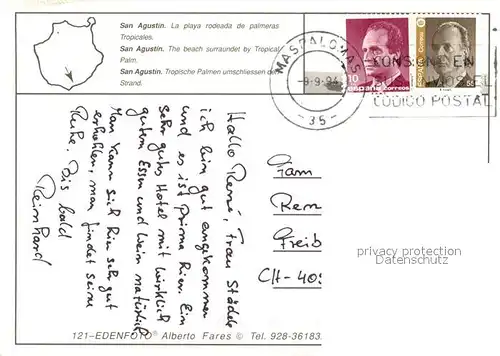 San Agustín. La playa rodeada de palmeras
Tropicales.
San Agustín. The beach surroundet by Tropical
Palm.
San Agustín. Tropische Palmen umschliessen de
Strand.
MASPALOMAS
-9.-9.94
-35-
CONSIGNE EN
CODIGO POSTAL
10
españa correos
ESPAÑA CORREOS
55
Hallo René, Frau Städele
ich bin gut angekommen
und es ist prima hier. Ein
sehr gutes Hotel mit wirklich
gutem Essen und Wein natürlich
Man kann sich hier sehr gut
erholen, man findet seine
Ruhe. Bis bald
Reinhard
Fam
Ren
Freib
CH-405
privacy protection
Datenschutz
121-EDENFOTO® Alberto Fares © Tel. 928-36183